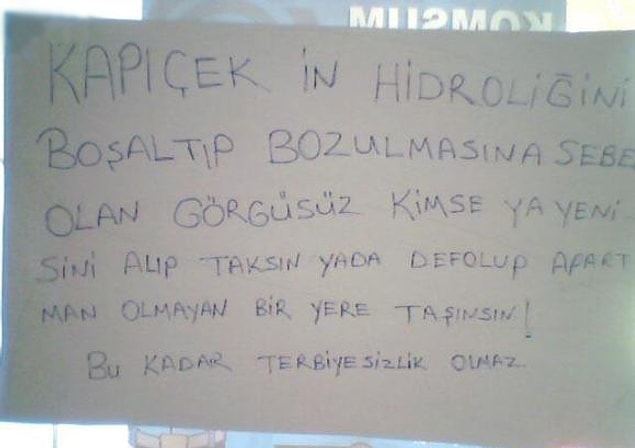 KOMŞUM
KAPIÇEK İN HİDROLİĞİNİ
BOŞALTIP BOZULMASINA SEBE
OLAN GÖRGÜSÜZ KİMSE YA YENİ
SİNİ ALIP TAKSIN YADA DEFOLUP APART
MAN OLMAYAN BİR YERE TAŞINSIN!
BU KADAR TERBİYESİZLİK OLMAZ.